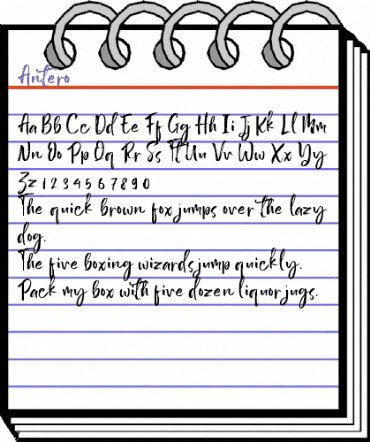 Antero
Aa Bb Cc Dd Ee Ff Gg Hh Ii Jj Kk Ll Mm
Nn Oo Pp Qq Rr Ss Tt Uu Vv Ww Xx Yy
Zz 1 2 3 4 5 6 7 8 9 0
The quick brown fox jumps over the lazy
dog.
The five boxing wizards jump quickly.
Pack my box with five dozen liquor jugs.